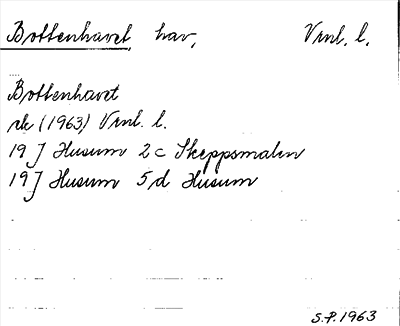 Bottenhavet, hav, Vrnl. l.
Bottenhavet
rk (1963) Vrnl. l.
19 J Husum 2 c Skeppsmalen
19 J Husum 5 d Husum
S.P. 1963